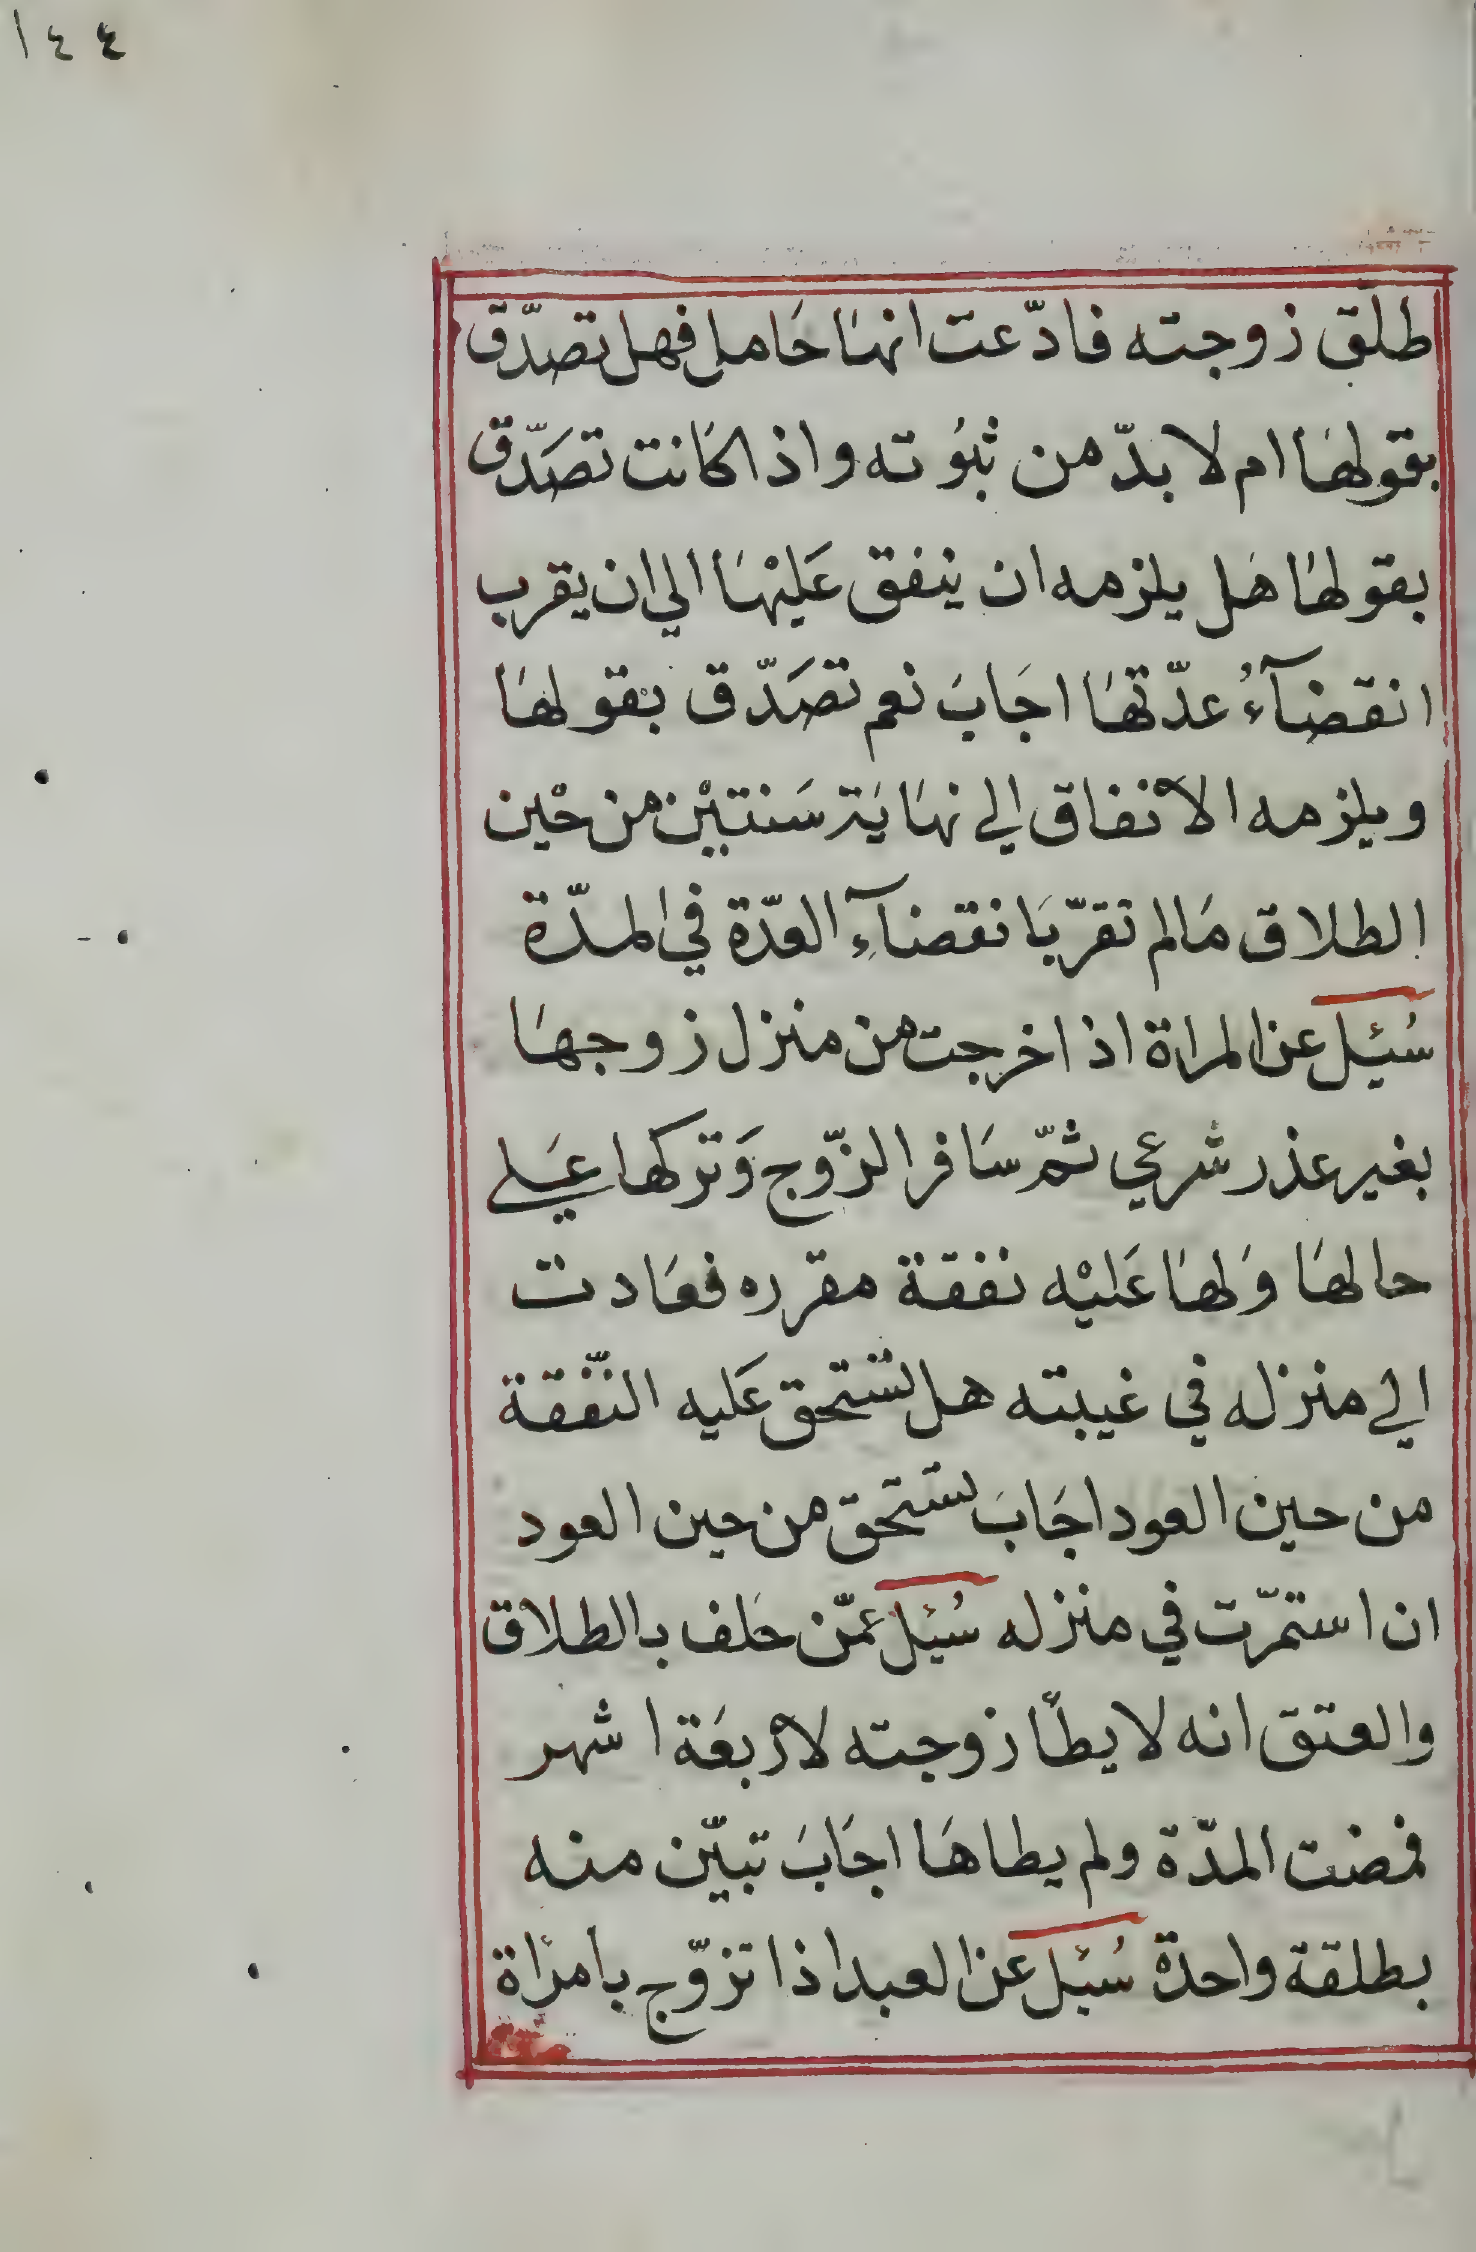 ١٤٤
طلّق زوجته فادّعت انهَا حَامل فهل تصدّق
بقولهَا ام لا بدّ من ثبُوته واذا كَانت تصَدّق
بقولهَا هَل يلزمه ان ينفق عَليْهَا الي ان يقرب
انقضَآءُ عدّتهَا اجَابَ نعم تصَدّق بقولهَا
ويلزمه الانفاق الي نهَايَة سَنتيْن من حْين
الطلاق مَالم تقرّ بَانقضَآءِ العدّة في المدّة
سُئِل عن المراة اذا خرجت من منزل زوجهَا
بغير عذر شرعي ثمّ سَافر الزّوج وَتركها عَلي
حالهَا وَلهَا عَليْه نفقة مقرره فعَادت
الي منزله في غيبته هل تستحق عَليه النّفقة
من حين العود اجَابَ تستحق من حين العود
ان استمرّت في منزله سُئِل عمّن حَلف بالطلاق
والعتق انه لا يطأ زوجته لأربعَة اشهر
فمضت المدّة ولم يطاهَا اجَابَ تبيّن منه
بطلقة واحدة سُئِل عن العبد اذا تزوّج بامرَاة